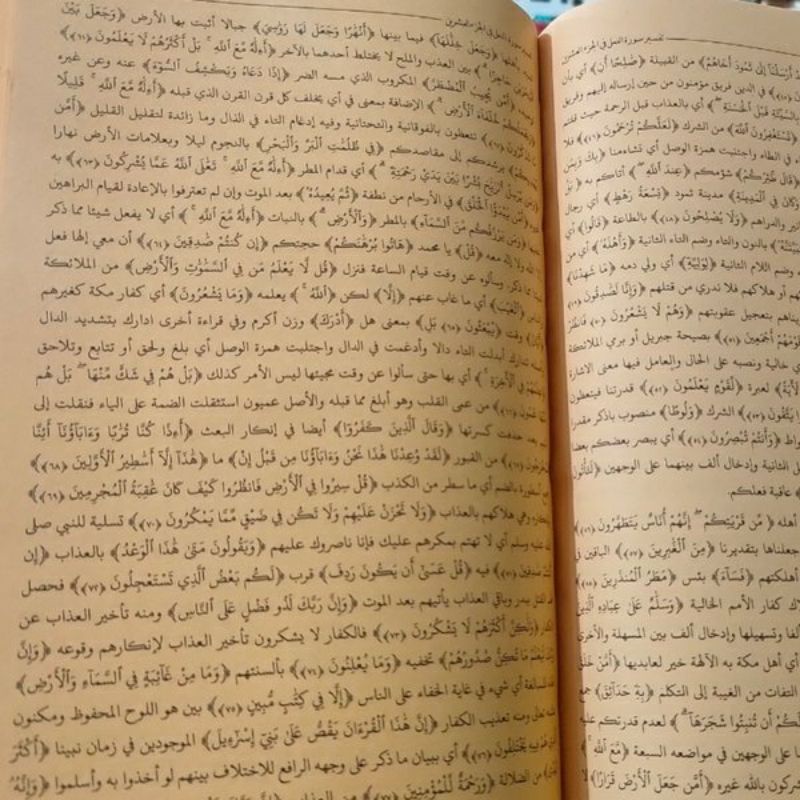 تفسير سورة النمل في الجزء العشرين
أَرْسَلْنَا إِلَى ثَمُودَ أَخَاهُمْ﴾ من القبيلة ﴿صَٰلِحًا أَنِ﴾ أي بأن
في الدين فريق مؤمنون من حين إرساله إليهم وفريق
بِالسَّيِّئَةِ قَبْلَ الْحَسَنَةِ﴾ أي بالعذاب قبل الرحمة حيث قلتم
تَسْتَغْفِرُونَ اللَّهَ﴾ من الشرك ﴿لَعَلَّكُمْ تُرْحَمُونَ﴾ فلا
في الطاء واجتلبت همزة الوصل أي تشاءمنا ﴿بِكَ وَبِمَن
قَالَ طَٰٓئِرُكُمْ﴾ شؤمكم ﴿عِندَ اللَّهِ﴾ أتاكم به ﴿بَلْ
وَكَانَ فِي الْمَدِينَةِ﴾ مدينة ثمود ﴿تِسْعَةُ رَهْطٍ﴾ أي رجال
والدراهم ﴿وَلَا يُصْلِحُونَ﴾ بالطاعة ﴿قَالُوا﴾ أي
بالنون والتاء وضم التاء الثانية ﴿وَأَهْلَهُ﴾ أي من
وضم اللام الثانية ﴿لِوَلِيِّهِ﴾ أي ولي دمه ﴿مَا شَهِدْنَا﴾
أو هلاكهم فلا ندري من قتلهم ﴿وَإِنَّا لَصَٰدِقُونَ
بتعجيل عقوبتهم ﴿وَهُمْ لَا يَشْعُرُونَ﴾ فَانظُرْ
وَقَوْمَهُمْ أَجْمَعِينَ﴾ بصيحة جبريل أو برمي الملائكة
أي خالية ونصبه على الحال والعامل فيها معنى الاشارة
لَآيَةً﴾ لعبرة ﴿لِقَوْمٍ يَعْلَمُونَ﴾ قدرتنا فيتعظون
يَتَّقُونَ﴾ الشرك ﴿وَلُوطًا﴾ منصوب باذكر مقدرا
﴿وَأَنتُمْ تُبْصِرُونَ﴾ أي يبصر بعضكم بعضا
الثانية وإدخال ألف بينهما على الوجهين ﴿لَتَأْتُونَ
عاقبة فعلكم.
أهله ﴿مِّن قَرْيَتِكُمْ إِنَّهُمْ أُنَاسٌ يَتَطَهَّرُونَ
جعلناها بتقديرنا ﴿مِنَ الْغَٰبِرِينَ﴾ الباقين في
أهلكتهم ﴿فَسَآءَ﴾ بئس ﴿مَطَرُ الْمُنذَرِينَ﴾
كفار الأمم الخالية ﴿وَسَلَٰمٌ عَلَىٰ عِبَادِهِ الَّذِينَ
ألفا وتسهيلها وإدخال ألف بين المسهلة والأخرى
أي أهل مكة به الآلهة خير لعابديها ﴿أَمَّنْ خَلَقَ
التفات من الغيبة إلى التكلم ﴿بِهِ حَدَآئِقَ﴾ جمع
لَكُمْ أَن تُنبِتُوا شَجَرَهَا﴾ لعدم قدرتكم عليه
على الوجهين في مواضعه السبعة ﴿مَّعَ اللَّهِ﴾
يشركون بالله غيره ﴿أَمَّن جَعَلَ الْأَرْضَ قَرَارًا﴾ لا
تفسير سورة النمل في الجزء العشرين
﴿وَجَعَلَ خِلَٰلَهَآ﴾ فيما بينها ﴿أَنْهَٰرًا وَجَعَلَ لَهَا رَوَٰسِيَ﴾ جبالا أثبت بها الأرض ﴿وَجَعَلَ بَيْنَ
حَاجِزًا﴾ بين العذب والملح لا يختلط أحدهما بالآخر ﴿أَءِلَٰهٌ مَّعَ اللَّهِ بَلْ أَكْثَرُهُمْ لَا يَعْلَمُونَ﴾
﴿أَمَّن يُجِيبُ الْمُضْطَرَّ﴾ المكروب الذي مسه الضر ﴿إِذَا دَعَاهُ وَيَكْشِفُ السُّوٓءَ﴾ عنه وعن غيره
﴿وَيَجْعَلُكُمْ خُلَفَآءَ الْأَرْضِ﴾ الإضافة بمعنى في أي يخلف كل قرن القرن الذي قبله ﴿أَءِلَٰهٌ مَّعَ اللَّهِ قَلِيلًا
مَّا تَذَكَّرُونَ﴾ تتعظون بالفوقانية والتحتانية وفيه إدغام التاء في الذال وما زائدة لتقليل القليل ﴿أَمَّن
يَهْدِيكُمْ﴾ يرشدكم إلى مقاصدكم ﴿فِي ظُلُمَٰتِ الْبَرِّ وَالْبَحْرِ﴾ بالنجوم ليلا وبعلامات الأرض نهارا
﴿وَمَن يُرْسِلُ الرِّيَٰحَ بُشْرًا بَيْنَ يَدَيْ رَحْمَتِهِ﴾ أي قدام المطر ﴿أَءِلَٰهٌ مَّعَ اللَّهِ تَعَٰلَى اللَّهُ عَمَّا يُشْرِكُونَ﴾ به
﴿أَمَّن يَبْدَؤُا الْخَلْقَ﴾ في الأرحام من نطفة ﴿ثُمَّ يُعِيدُهُ﴾ بعد الموت وإن لم تعترفوا بالإعادة لقيام البراهين
﴿وَمَن يَرْزُقُكُم مِّنَ السَّمَآءِ﴾ بالمطر ﴿وَالْأَرْضِ﴾ بالنبات ﴿أَءِلَٰهٌ مَّعَ اللَّهِ﴾ أي لا يفعل شيئا مما ذكر
الا الله ولا إله معه ﴿قُلْ﴾ يا محمد ﴿هَاتُوا بُرْهَٰنَكُمْ﴾ حجتكم ﴿إِن كُنتُمْ صَٰدِقِينَ﴾ أن معي إلها فعل
مما ذكر، وسألوه عن وقت قيام الساعة فنزل ﴿قُل لَّا يَعْلَمُ مَن فِي السَّمَٰوَٰتِ وَالْأَرْضِ﴾ من الملائكة
والناس ﴿الْغَيْبَ﴾ أي ما غاب عنهم ﴿إِلَّا﴾ لكن ﴿اللَّهُ﴾ يعلمه ﴿وَمَا يَشْعُرُونَ﴾ أي كفار مكة كغيرهم
وقت ﴿يُبْعَثُونَ﴾ بَلِ﴾ بمعنى هل ﴿أَدْرَكَ﴾ وزن أكرم وفي قراءة أخرى ادارك بتشديد الدال
تدارك أبدلت التاء دالا وأدغمت في الدال واجتلبت همزة الوصل أي بلغ ولحق أو تتابع وتلاحق
﴿عِلْمُهُمْ فِي الْآخِرَةِ﴾ أي بها حتى سألوا عن وقت مجيئها ليس الأمر كذلك ﴿بَلْ هُمْ فِي شَكٍّ مِّنْهَا بَلْ هُم
من عمى القلب وهو أبلغ مما قبله والأصل عميون استثقلت الضمة على الياء فنقلت إلى
بعد حذف كسرتها ﴿وَقَالَ الَّذِينَ كَفَرُوا﴾ أيضا في إنكار البعث ﴿أَءِذَا كُنَّا تُرَٰبًا وَءَابَآؤُنَآ أَئِنَّا
من القبور ﴿لَقَدْ وُعِدْنَا هَٰذَا نَحْنُ وَءَابَآؤُنَا مِن قَبْلُ إِنْ﴾ ما ﴿هَٰذَآ إِلَّآ أَسَٰطِيرُ الْأَوَّلِينَ﴾
أسطورة بالضم أي ما سطر من الكذب ﴿قُلْ سِيرُوا فِي الْأَرْضِ فَانظُرُوا كَيْفَ كَانَ عَٰقِبَةُ الْمُجْرِمِينَ﴾
وهي هلاكهم بالعذاب ﴿وَلَا تَحْزَنْ عَلَيْهِمْ وَلَا تَكُن فِي ضَيْقٍ مِّمَّا يَمْكُرُونَ﴾ تسلية للنبي صلى
عليه وسلم أي لا تهتم بمكرهم عليك فإنا ناصروك عليهم ﴿وَيَقُولُونَ مَتَىٰ هَٰذَا الْوَعْدُ﴾ بالعذاب ﴿إِن
فيه ﴿قُلْ عَسَىٰٓ أَن يَكُونَ رَدِفَ﴾ قرب ﴿لَكُم بَعْضُ الَّذِي تَسْتَعْجِلُونَ﴾ فحصل
ببدر وباقي العذاب يأتيهم بعد الموت ﴿وَإِنَّ رَبَّكَ لَذُو فَضْلٍ عَلَى النَّاسِ﴾ ومنه تأخير العذاب عن
﴿وَلَٰكِنَّ أَكْثَرَهُمْ لَا يَشْكُرُونَ﴾ فالكفار لا يشكرون تأخير العذاب لإنكارهم وقوعه ﴿وَإِنَّ
لَيَعْلَمُ مَا تُكِنُّ صُدُورُهُمْ﴾ تخفيه ﴿وَمَا يُعْلِنُونَ﴾ بألسنتهم ﴿وَمَا مِنْ غَآئِبَةٍ فِي السَّمَآءِ وَالْأَرْضِ﴾
للمبالغة أي شيء في غاية الخفاء على الناس ﴿إِلَّا فِي كِتَٰبٍ مُّبِينٍ﴾ بين هو اللوح المحفوظ ومكنون
تعالى ومنه تعذيب الكفار ﴿إِنَّ هَٰذَا الْقُرْءَانَ يَقُصُّ عَلَىٰ بَنِيٓ إِسْرَٰٓءِيلَ﴾ الموجودين في زمان نبينا ﴿أَكْثَرَ
هُمْ فِيهِ يَخْتَلِفُونَ﴾ أي ببيان ما ذكر على وجهه الرافع للاختلاف بينهم لو أخذوا به وأسلموا ﴿وَإِنَّهُ
من الضلالة ﴿وَرَحْمَةٌ لِّلْمُؤْمِنِينَ﴾ من العذاب